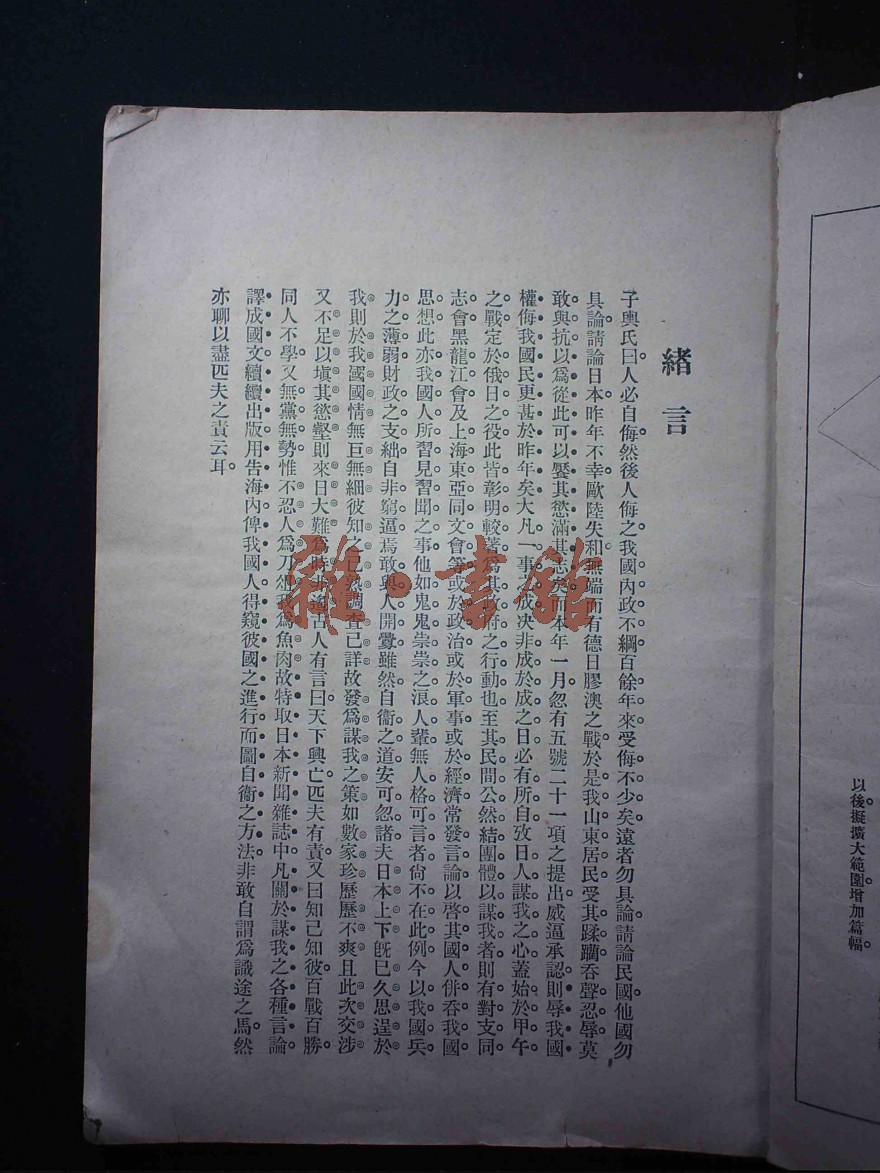 以後擬擴大範圍增加篇幅。
緒言
子輿氏曰。人必自侮。然後人侮之。我國內政不綱。百餘年來。受侮不少矣。遠者勿具論。請論民國。他國勿
具論。請論日本。昨年不幸。歐陸失和。無端而有德日膠澳之戰。於是我山東居民。受其蹂躪。吞聲忍辱。莫
敢與抗。以爲從此可以饜其慾。滿其志矣。而本年一月。忽有五號二十一項之提出。威逼承認。則辱我國
權。侮我國民。更甚於昨年矣。大凡一事之成。決非成於成之日。必有所自。攷日人謀我之心。蓋始於甲午
之戰。定於俄日之役。此皆彰明較著。爲其政府之行動也。至其民間公然結團體以謀我者。則有對支同
志會。黑龍江會。及上海東亞同文會等。或於政治。或於軍事。或於經濟。常發言論。以啓其國人併吞我國
思想。此亦我國人所習見習聞之事。他如鬼鬼祟祟之浪人輩。無人格可言者。尙不在此例。今以我國兵
力之薄弱。財政之支絀。自非窮逼。焉敢與人開釁。雖然。自衞之道。安可忽諸。夫日本上下。旣已久思逞於
我。則於我國國情。無巨無細。彼知之已熟。調查已詳。故發爲謀我之策。如數家珍。歷歷不爽。且此次交涉
又不足以塡其慾壑。則來日大難。爲時非遙。古人有言曰。天下興亡。匹夫有責。又曰。知己知彼。百戰百勝。
同人不學。又無黨無勢。惟不忍人爲刀俎。我爲魚肉。故特取日本新聞雜誌中。凡關於謀我之各種言論
譯成國文。續續出版。用告海內。俾我國人得窺彼國之進行。而圖自衞之方法。非敢自謂爲識途之馬。然
亦聊以盡匹夫之責云耳。
雜·書館